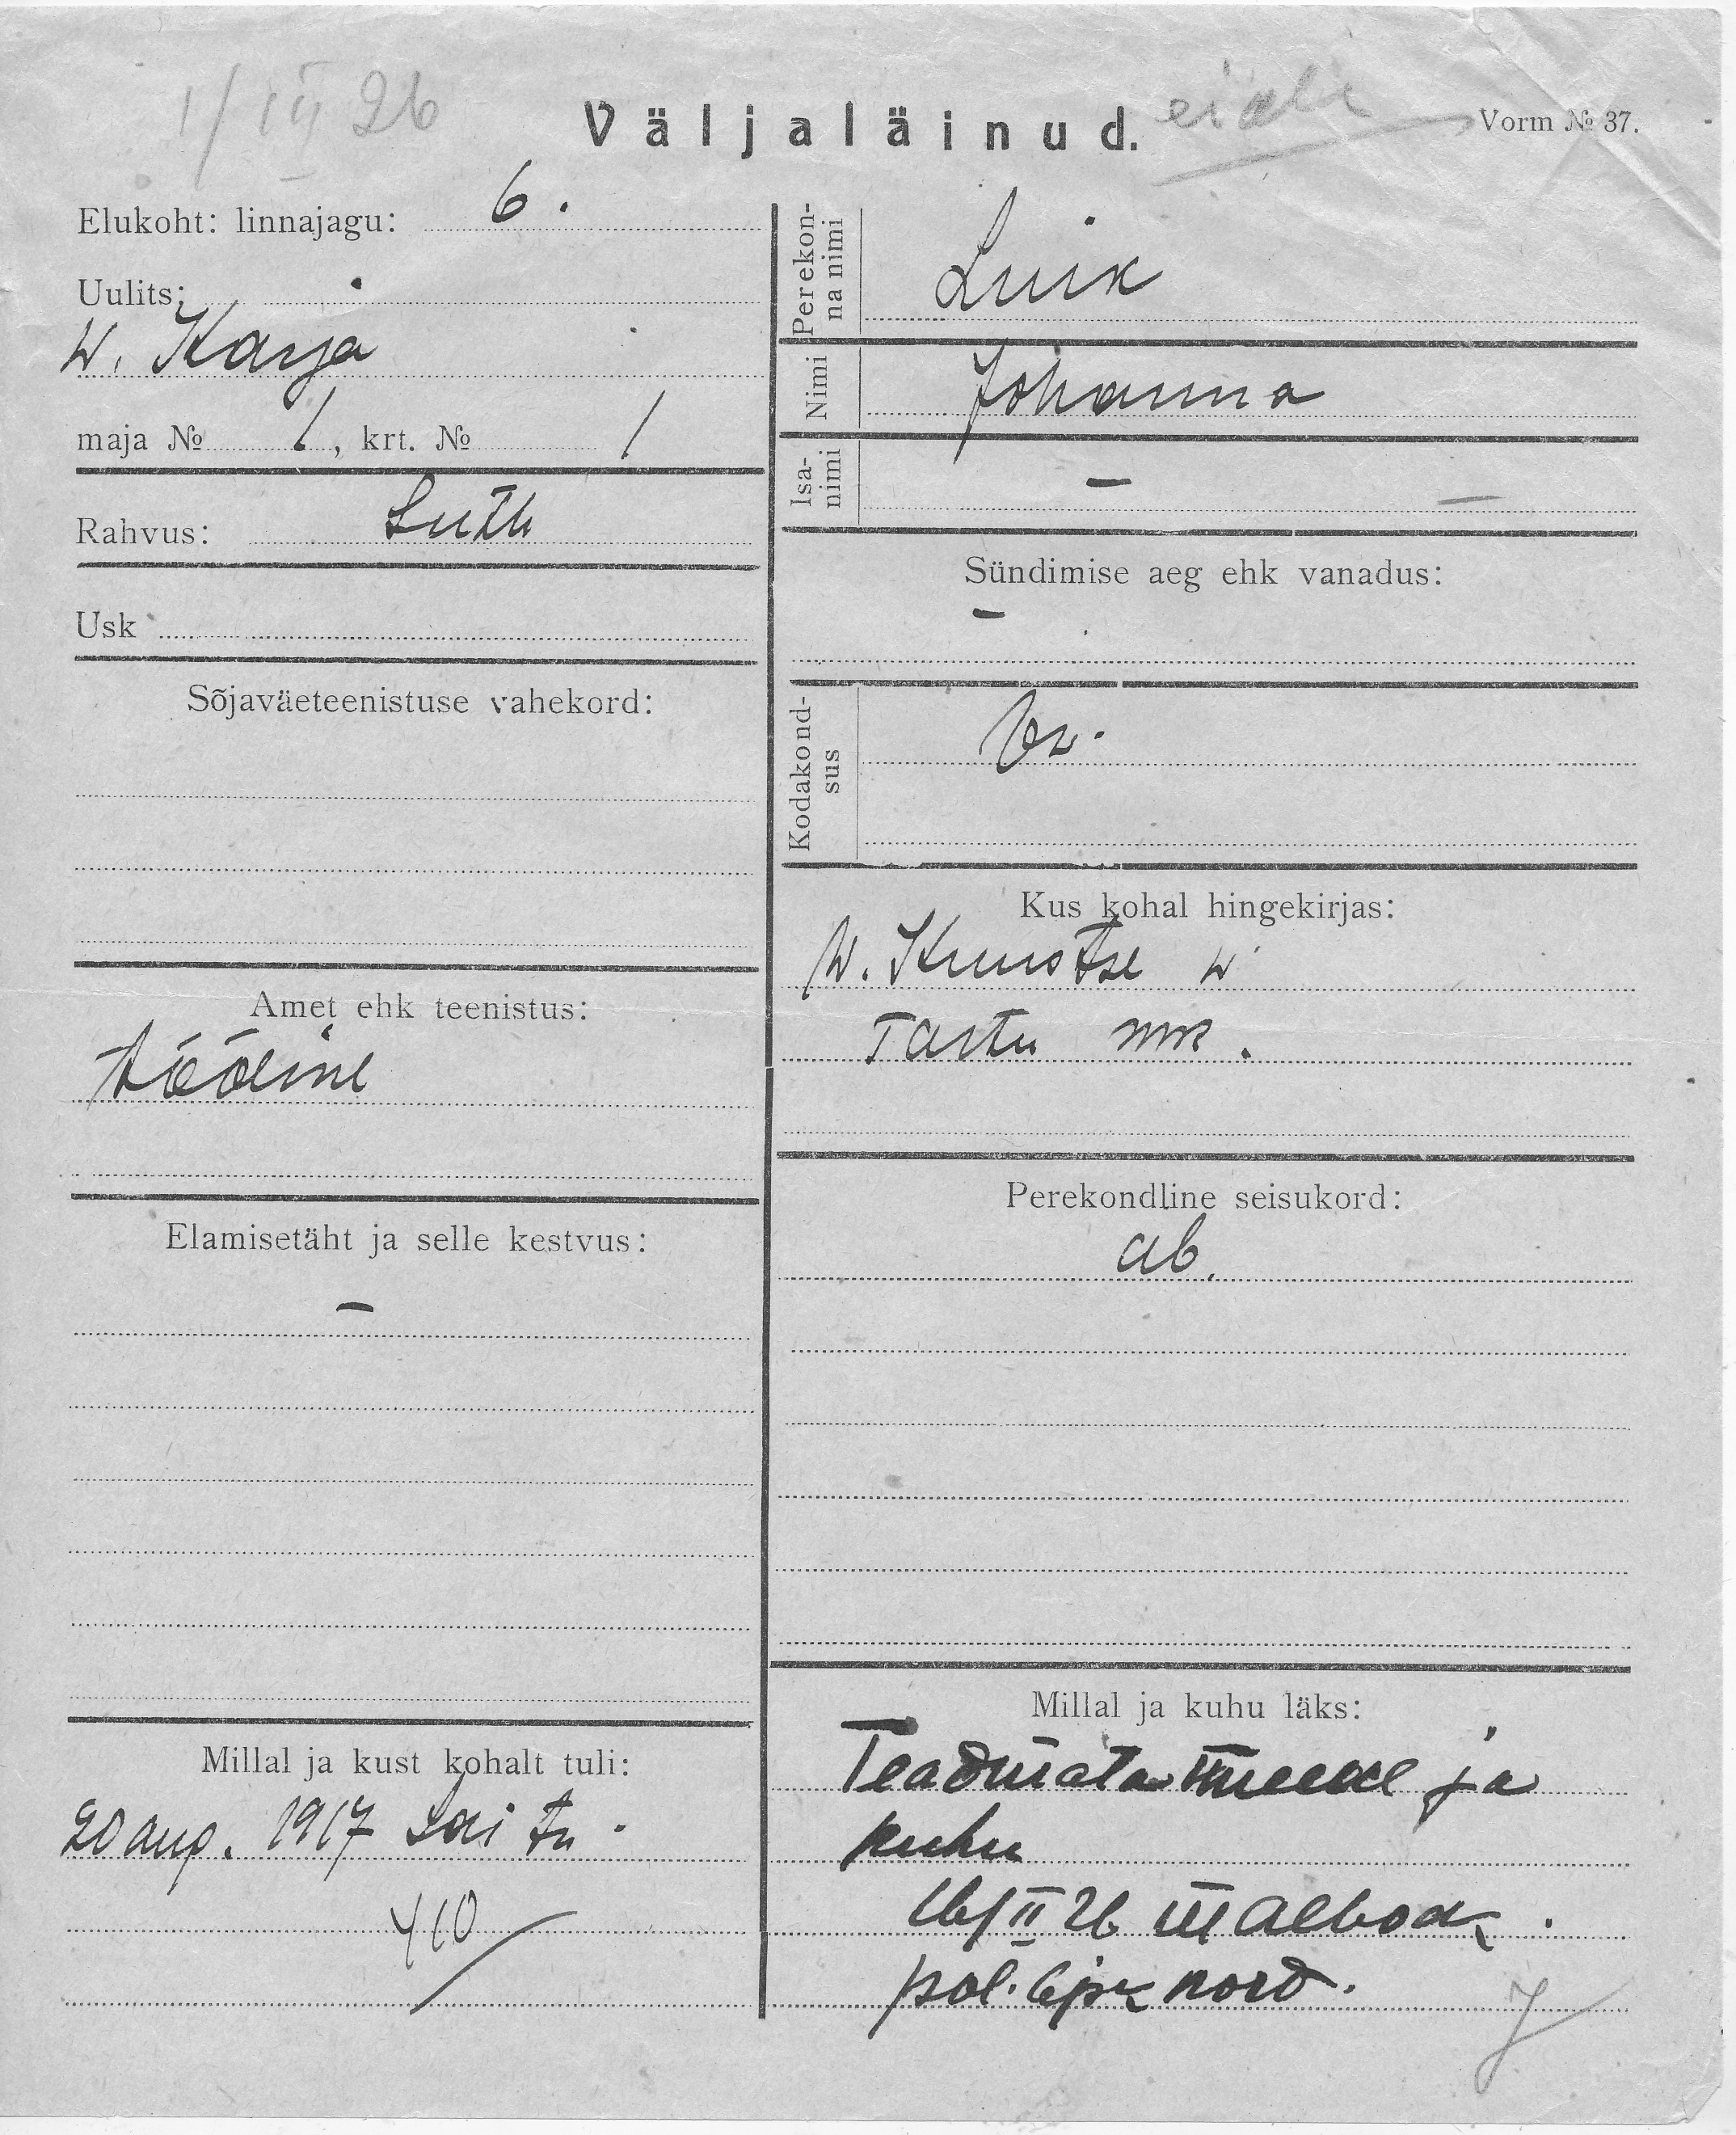 1/III 26
Väljaläinud.
Vorm № 37.
Elukoht: linnajagu: 6.
Uulits:
W. Karja
maja № 1, krt. № 1
Rahvus: Luth
Usk
Sõjaväeteenistuse vahekord:
Amet ehk teenistus:
tööline
Elamisetäht ja selle kestvus:
—
Millal ja kust kohalt tuli:
20 aug. 1917
410
Perekonna nimi
Luik
Nimi
Johanna
Isanimi
—
Sündimise aeg ehk vanadus:
—
Kodakondsus
Kus kohal hingekirjas:
W. Kuuste w
Tartu mk.
Perekondline seisukord:
ab.
Millal ja kuhu läks:
Teadmata millal ja
kuhu
16/II 26
pol. kord.